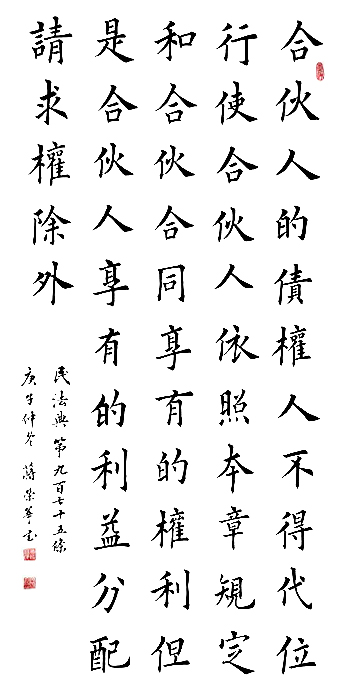 合伙人的債權人不得代位
行使合伙人依照本章規定
和合伙合同享有的權利但
是合伙人享有的利益分配
請求權除外
民法典第九百七十五條
庚子仲冬 蔣榮